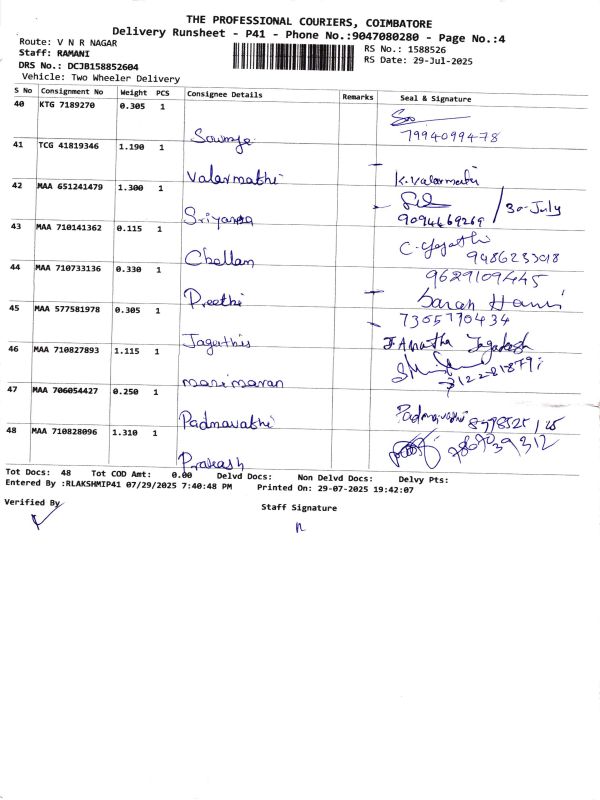 THE PROFESSIONAL COURIERS, COIMBATORE
Delivery Runsheet - P41 - Phone No.:9047080280 - Page No.:4
Route: V N R NAGAR
Staff: RAMANI
DRS No.: DCJB158852604
Vehicle: Two Wheeler Delivery
RS No.: 1588526
RS Date: 29-Jul-2025
S No Consignment No Weight PCS Consignee Details Remarks Seal & Signature
40 KTG 7189270 0.305 1
Sowmya 7994099478
41 TCG 41819346 1.190 1
Valarmathi K. Valarmathi
42 MAA 651241479 1.300 1
Sriyanga 9094669269 / 30-July
43 MAA 710141362 0.115 1
Chellam C. 9486233018
44 MAA 710733136 0.330 1
9629109445
Preethi Saran
45 MAA 577581978 0.305 1
7305770434
Jagathis Jagadeesh
46 MAA 710827893 1.115 1
marimaran
47 MAA 706054427 0.250 1
Padmavathi Padmavathi
48 MAA 710828096 1.310 1
Prakash
Tot Docs: 48 Tot COD Amt: 0.00 Delvd Docs: Non Delvd Docs: Delvy Pts:
Entered By :RLAKSHMIP41 07/29/2025 7:40:48 PM Printed On: 29-07-2025 19:42:07
Verified By
Staff Signature